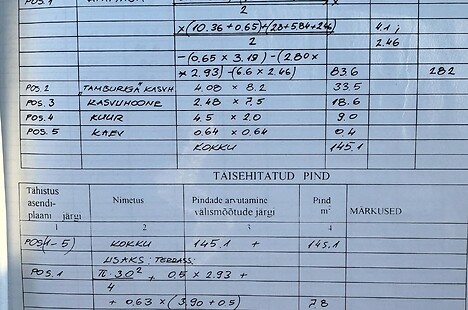 POS.1
2
×(10.36+0.65)+(28+5.84+2.46) 4.1 ;
2 2.46
-(0.65 × 3.19) - (2.80 ×
× 2.93) - (6.6 × 2.46) 83.6 282
POS.2 „TAMBURIGA" KASVH. 4.08 × 8.2 33.5
POS.3 KASVUHOONE 2.48 × 7.5 18.6
POS.4 KUUR 4.5 × 2.0 9.0
POS.5 KAEV 0.64 × 0.64 0.4
KOKKU 145.1
TÄISEHITATUD PIND
Tähistus asendi-plaani järgi Nimetus Pindade arvutamine välismõõtude järgi Pind m² MÄRKUSED
1 2 3 4
POS(1-5) KOKKU 145.1 + 145.1
LISAKS: TERRASS:
POS.1 π·3.0² + 0.5 × 2.93 +
4
+ 0.63 × (3.90 + 0.5) 7.8